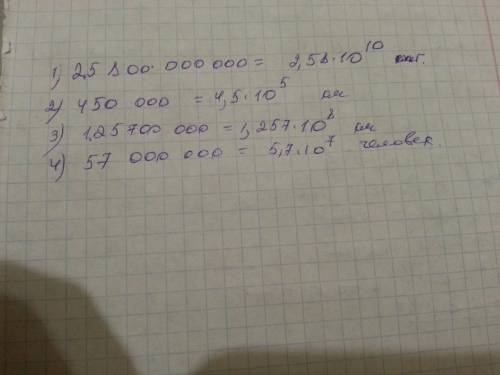 1) 25 800 000 000 = 2,58·10¹⁰ шт.
2) 450 000 = 4,5·10⁵ км
3) 125700 000 = 1,257·10⁸ км
4) 57 000 000 = 5,7·10⁷ человек.